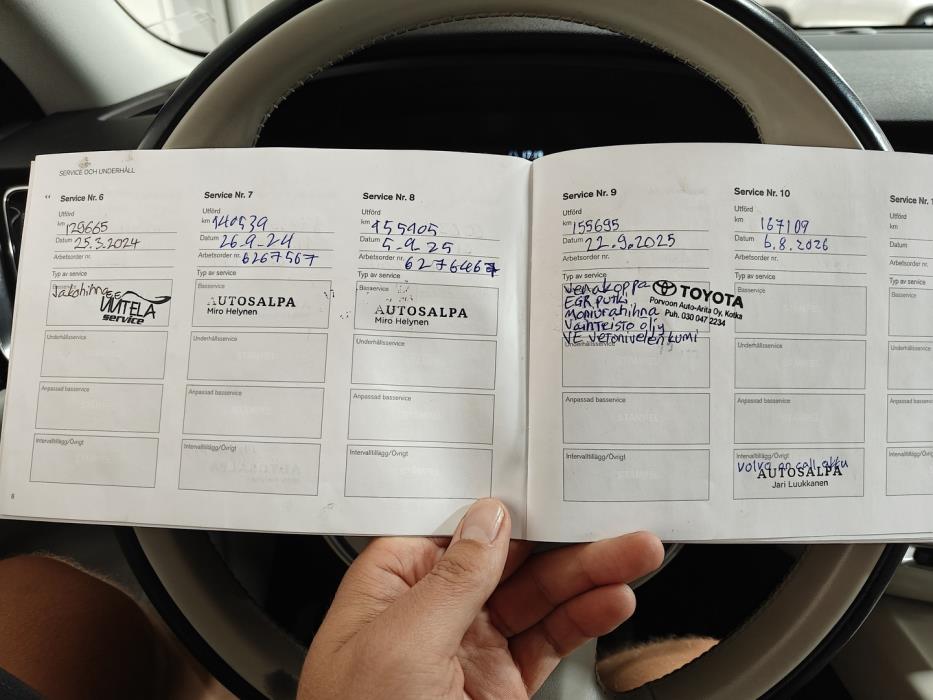 SERVICE OCH UNDERHÅLL
Service Nr. 6
Utförd
km 129665
Datum 25.3.2024
Arbetsorder nr.
Typ av service
Basservice
Jakohihna
VIMTELA
service
Underhållsservice
Anpassad basservice
Intervalltillägg/Övrigt
8
Service Nr. 7
Utförd
km 140539
Datum 26.9-24
Arbetsorder nr. 6267567
Typ av service
Basservice
AUTOSALPA
Miro Helynen
Underhållsservice
Anpassad basservice
Intervalltillägg/Övrigt
Service Nr. 8
Utförd
km 155405
Datum 5-9.25
Arbetsorder nr.
Typ av service
Basservice
AUTOSALPA
Miro Helynen
Underhållsservice
Anpassad basservice
Intervalltillägg/Övrigt
Service Nr. 9
Utförd
km 155695
Datum 22.9.2025
Arbetsorder nr.
Typ av service
Venakoppa
EGR putki
Moniurahihna
Vaihteisto öljy
VE vetonivelen kumi
TOYOTA
Porvoon Auto-Arita Oy, Kotka
Puh. 030 047 2234
Underhållsservice
Anpassad basservice
Intervalltillägg/Övrigt
Service Nr. 10
Utförd
km 167109
Datum 6.8.2026
Arbetsorder nr.
Typ av service
Basservice
Underhållsservice
Anpassad basservice
Intervalltillägg/Övrigt
volvo on call akku
AUTOSALPA
Jari Luukkanen
Service Nr. 1
Utförd
km
Datum
Arbetsorder
Typ av service
Basservice
Underhållsservice
Anpassad
Intervalltillägg